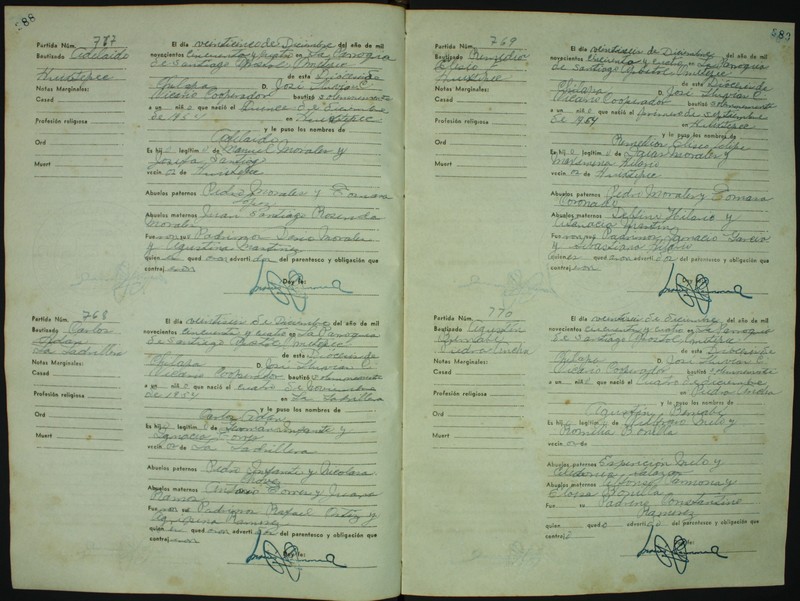 588
Partida Núm. 777
Bautizado Adelaido
Huixtepec
Notas Marginales:
Casad
Profesión religiosa
Ord
Muert
El día veinticinco de Diciembre del año de mil
novecientos cincuenta y cuatro en La Parroquia
de Santiago Apóstol Ometepec
de esta Diócesis de
Chilapa D. José
Vicario Cooperador bautizó solemnemente
a un niño que nació el quince de Diciembre
de 1954 en Huixtepec
y le puso los nombres de
Adelaido
Es hijo legítimo de Manuel Morales y
Josefa Santiago
vecinos de Huixtepec
Abuelos paternos Pedro Morales y Tomasa
Abuelos maternos Juan Santiago Rosenda
Morales
Fueron sus Padrinos Morales
y Agustina Martínez
quienes quedaron advertidos del parentesco y obligación que
contrajeron
Doy fe:
Partida Núm. 768
Bautizado Carlos
Adan
La Ladrillera
Notas Marginales:
Casad
Profesión religiosa
Ord
Muert
El día veintiseis de Diciembre del año de mil
novecientos cincuenta y cuatro en La Parroquia
de Santiago Apóstol Ometepec
de esta Diócesis de
Chilapa D. José
Vicario Cooperador bautizó solemnemente
a un niño que nació el cuatro de Noviembre
de 1954 en La Ladrillera
y le puso los nombres de
Carlos Adan
Es hijo legítimo de German Infante y
Ignacia Torres
vecinos de La Ladrillera
Abuelos paternos Pedro Infante y Nicolasa
Abuelos maternos Antonio Torres y Juana
Ramos
Fueron sus Padrinos Rafael Ortiz y
Agripina Ramirez
quienes quedaron advertidos del parentesco y obligación que
contrajeron
Doy fe:
589
Partida Núm. 769
Bautizado Remedio
Huixtepec
Notas Marginales:
Casad
Profesión religiosa
Ord
Muert
El día veintiseis de Diciembre del año de mil
novecientos cincuenta y cuatro en La Parroquia
de Santiago Apóstol Ometepec
de esta Diócesis de
Chilapa D. José
Vicario Cooperador bautizó solemnemente
a un niño que nació el primero de Septiembre
de 1954 en Huixtepec
y le puso los nombres de
Remedio Eliseo
Es hijo legítimo de Morales y
Hilario
vecinos de Huixtepec
Abuelos paternos Pedro Morales y Tomasa
Coronado
Abuelos maternos Hilario y
Martin
Fueron sus Padrinos Ignacio Garcia
y Sebastiana Hilario
quienes quedaron advertidos del parentesco y obligación que
contrajeron
Doy fe:
Partida Núm. 770
Bautizado Agustin
Bernabé
Piedra Ancha
Notas Marginales:
Casad
Profesión religiosa
Ord
Muert
El día veintiseis de Diciembre del año de mil
novecientos cincuenta y cuatro en La Parroquia
de Santiago Apóstol Ometepec
de esta Diócesis de
Chilapa D. José
Vicario Cooperador bautizó solemnemente
a un niño que nació el cuatro de Diciembre
en Piedra Ancha
y le puso los nombres de
Agustin Bernabé
Es hijo legítimo de y
Romelia Bonilla
vecinos de
Abuelos paternos y
Salazar
Abuelos maternos Carmona y
Eloisa Bonilla
Fue su Padrino Constantino
Ramirez
quien quedó advertido del parentesco y obligación que
contrajo
Doy fe: